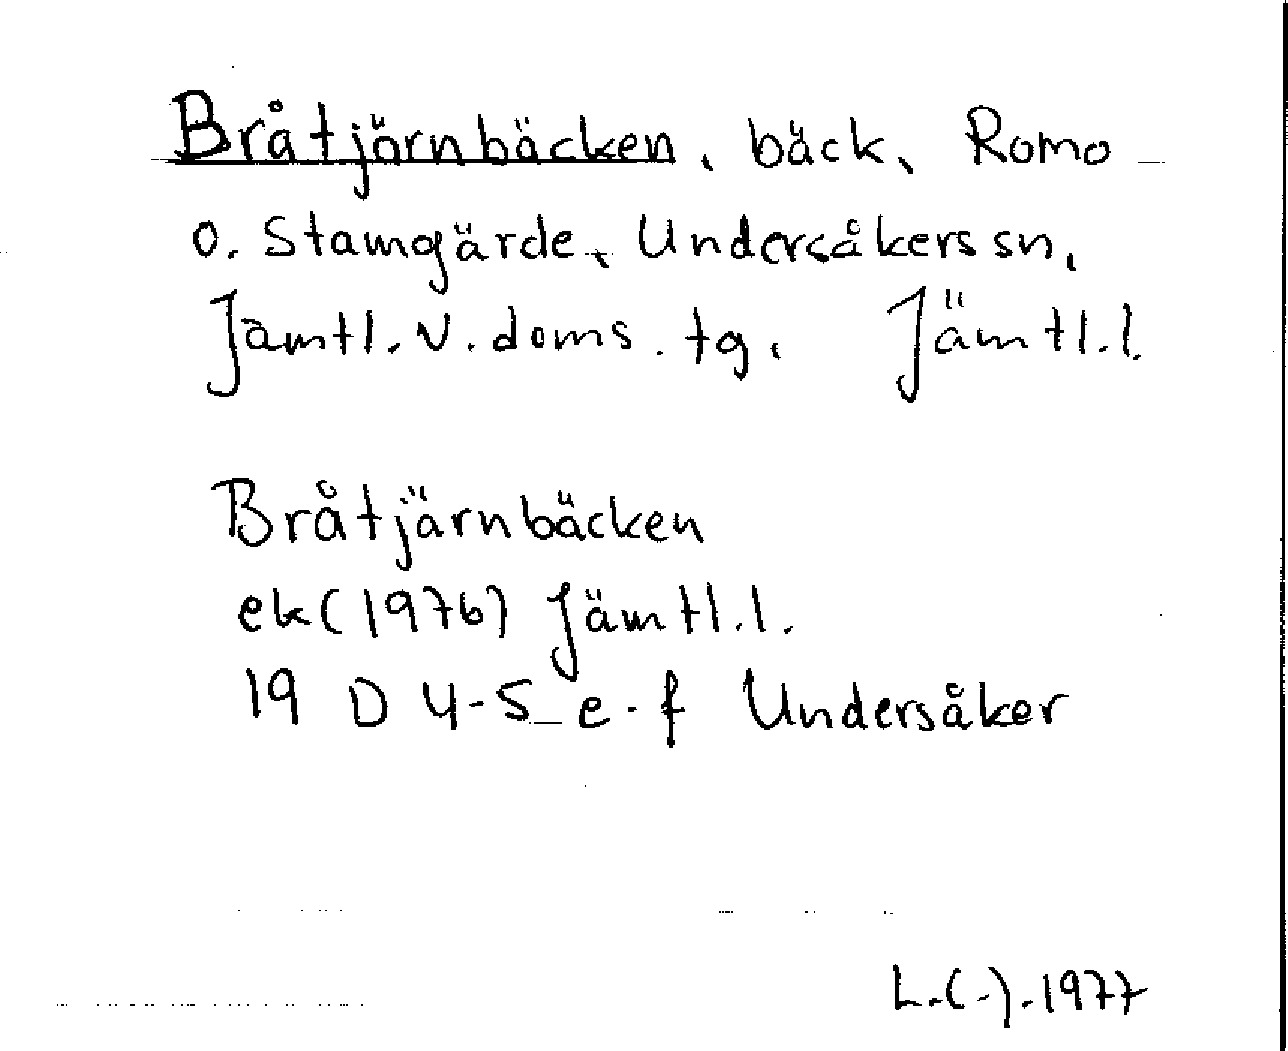 Bråtjärnbäcken, bäck, Romo
o. Stamgärde, Undersåkers sn,
Jämtl. v. doms. tg, Jämtl.l.
Bråtjärnbäcken
ek (1976) Jämtl.l.
19 D 4-5 e-f Undersåker
L.(-).1977